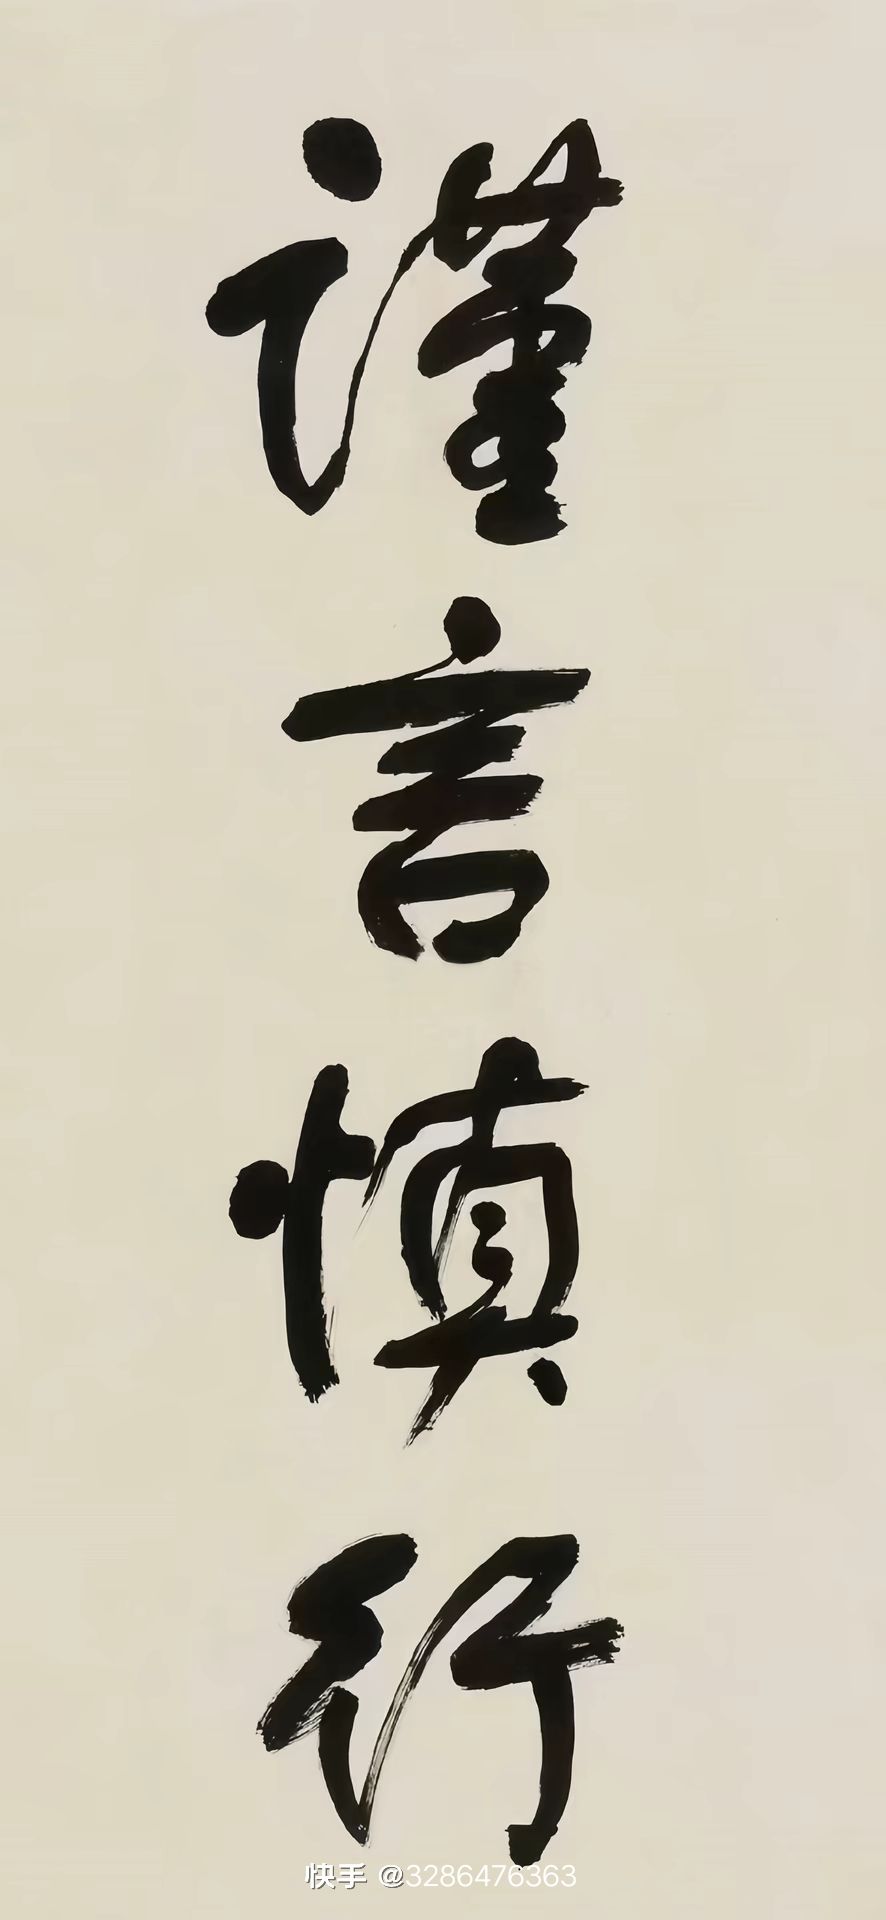 谨言慎行
快手 @3286476363